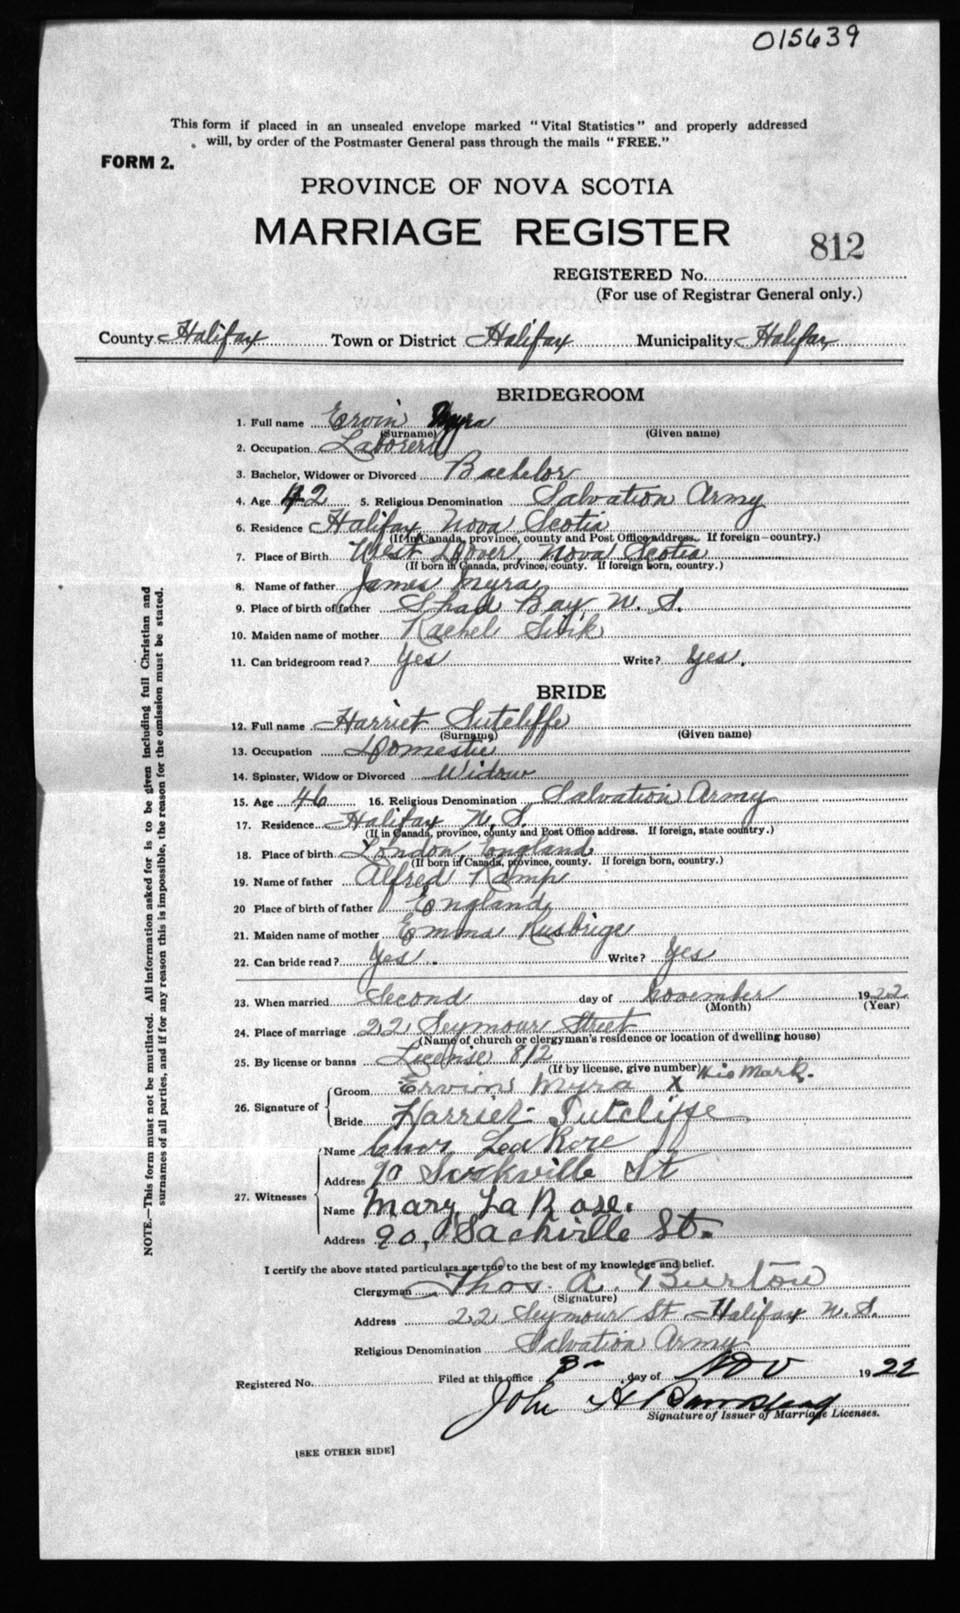 015639
This form if placed in an unsealed envelope marked "Vital Statistics" and properly addressed
will, by order of the Postmaster General pass through the mails "FREE."
FORM 2.
PROVINCE OF NOVA SCOTIA
MARRIAGE REGISTER
812
REGISTERED No.
(For use of Registrar General only.)
County Halifax Town or District Halifax Municipality Halifax
BRIDEGROOM
1. Full name Ervin Myra
(Surname) (Given name)
2. Occupation Laborer
3. Bachelor, Widower or Divorced Bachelor
4. Age 42 5. Religious Denomination Salvation Army
6. Residence Halifax Nova Scotia
(If in Canada, province, county and Post Office address. If foreign—country.)
7. Place of Birth West Dover, Nova Scotia
(If born in Canada, province, county. If foreign born, country.)
8. Name of father James Myra
9. Place of birth of father Shad Bay N. S.
10. Maiden name of mother Rachel
11. Can bridegroom read? Yes Write? Yes.
BRIDE
12. Full name Harriet Sutcliffe
(Surname) (Given name)
13. Occupation Domestic
14. Spinster, Widow or Divorced Widow
15. Age 46 16. Religious Denomination Salvation Army
17. Residence Halifax N. S.
(If in Canada, province, county and Post Office address. If foreign, state country.)
18. Place of birth London, England
(If born in Canada, province, county. If foreign born, country.)
19. Name of father Alfred Kamp
20 Place of birth of father England
21. Maiden name of mother Emma Rusbrige
22. Can bride read? Yes. Write? Yes
23. When married Second day of November 1922
(Month) (Year)
24. Place of marriage 22 Seymour Street
(Name of church or clergyman's residence or location of dwelling house)
25. By license or banns License 812
(If by license, give number)
26. Signature of Groom Ervin Myra X His Mark.
Bride Harriet Sutcliffe
27. Witnesses Name Chas LeaRose
Address 90 Sackville St
Name Mary La Rose.
Address 90, Sackville St.
I certify the above stated particulars are true to the best of my knowledge and belief.
Clergyman Thos. A. Burton
(Signature)
Address 22 Seymour St. Halifax N. S.
Religious Denomination Salvation Army
Registered No. Filed at this office day of Nov 1922
John A
Signature of Issuer of Marriage Licenses.
[SEE OTHER SIDE]
NOTE.—This form must not be mutilated. All information asked for is to be given including full Christian and
surnames of all parties, and if for any reason this is impossible, the reason for the omission must be stated.